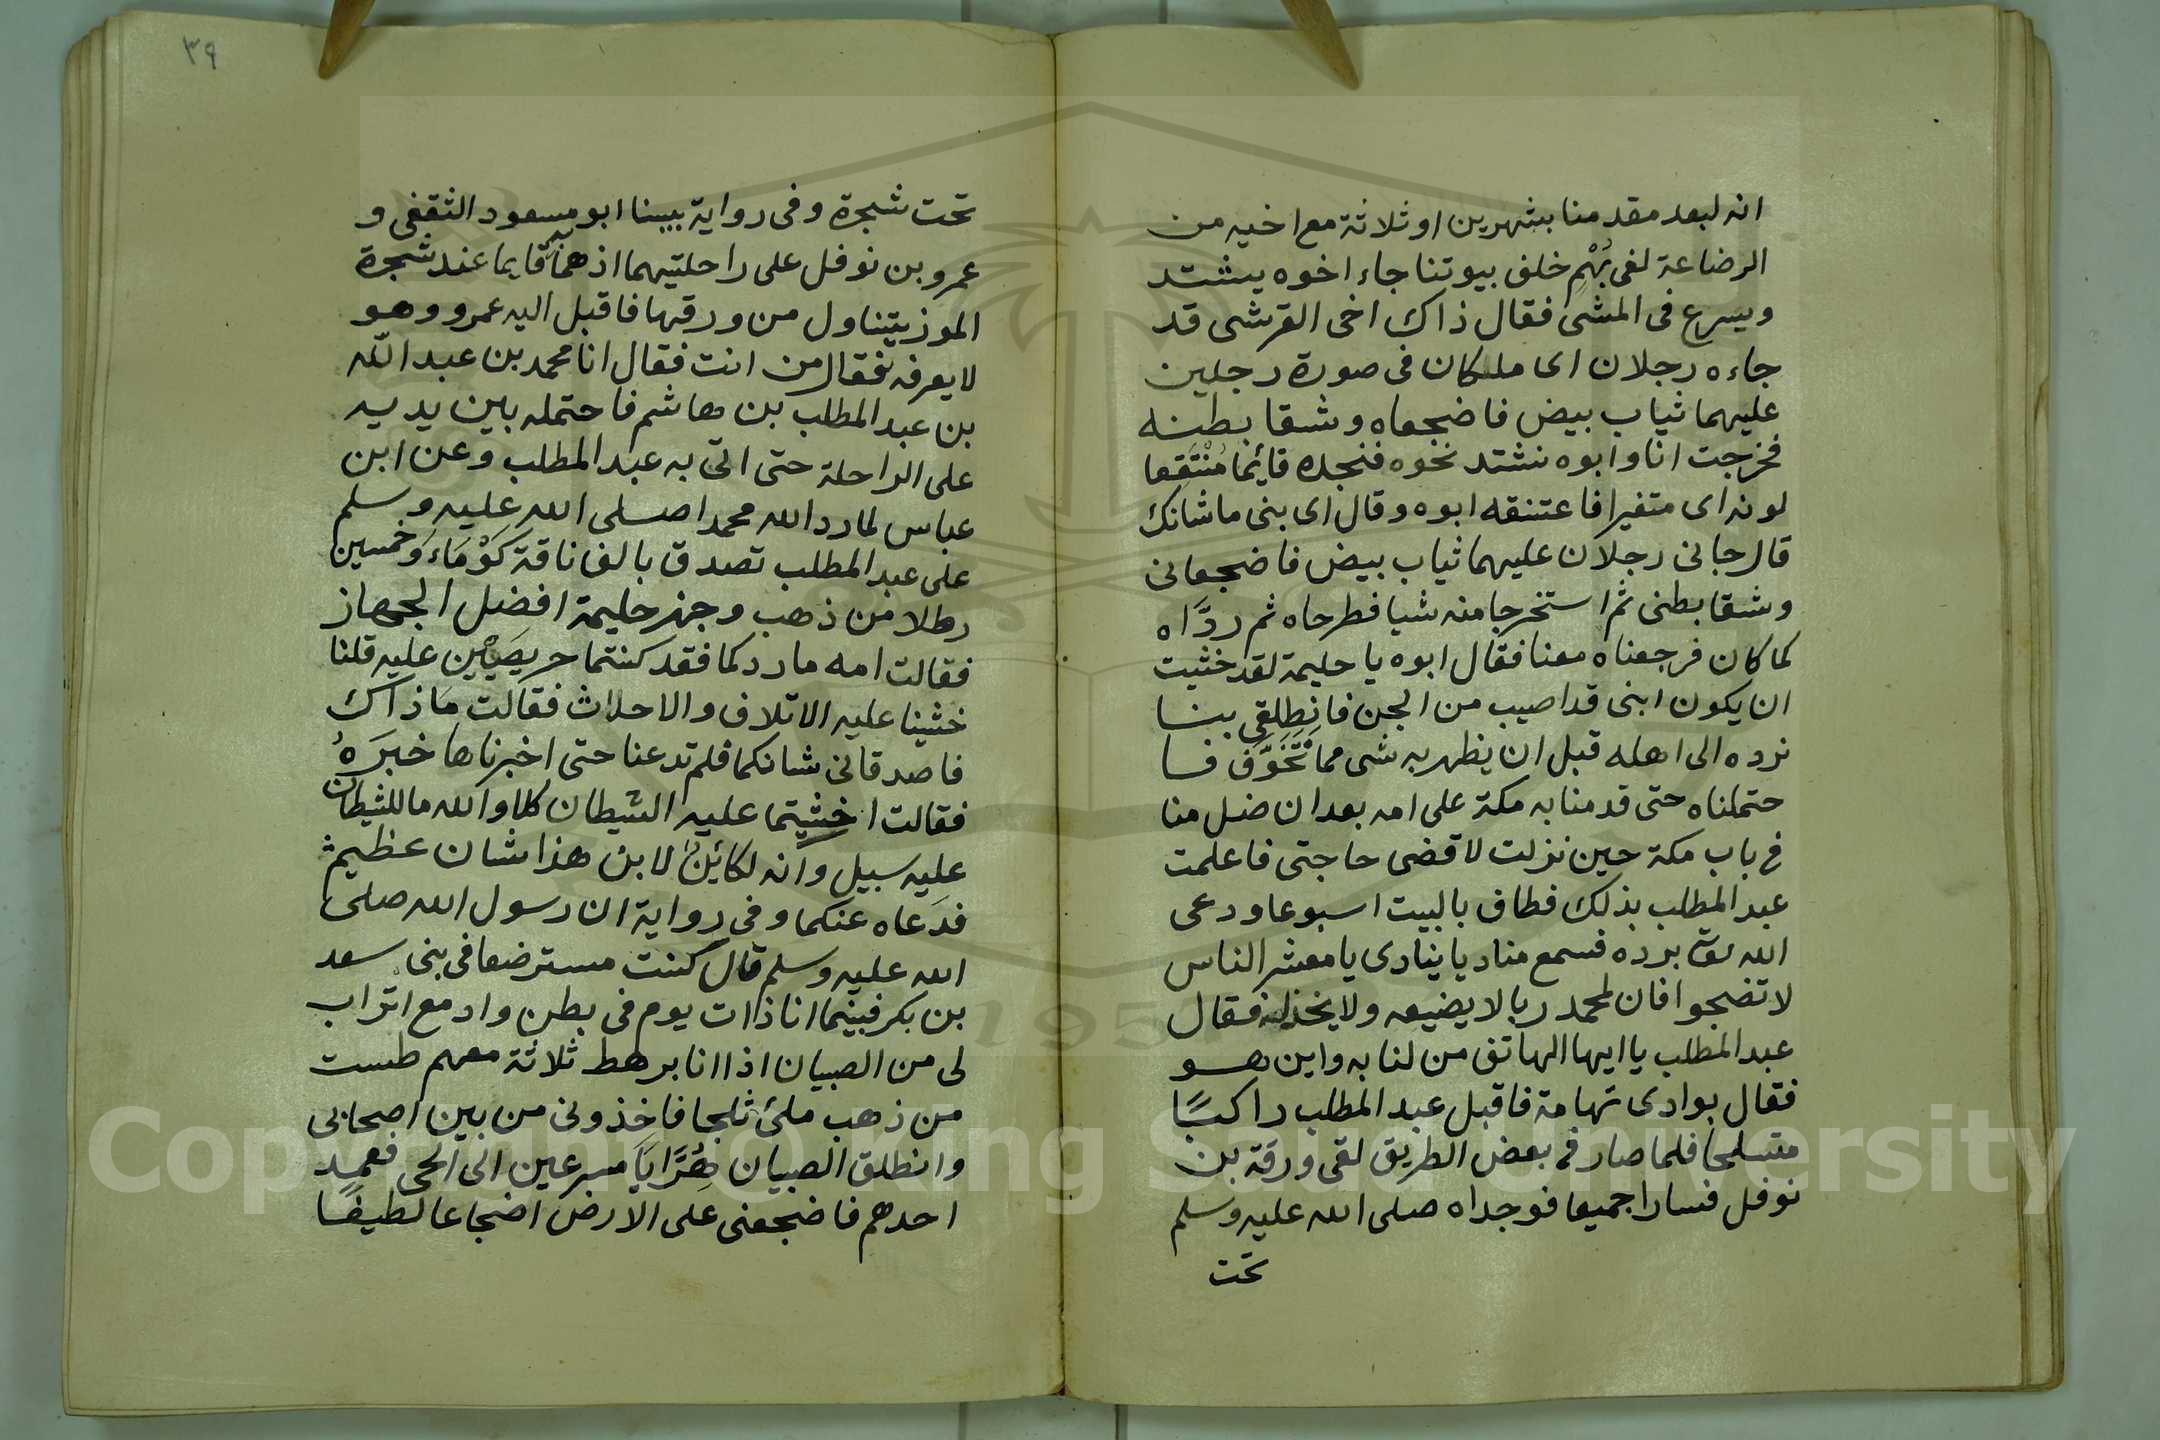 انه لبعد مقدمنا بشهرين او ثلاثة مع اخيه من
الرضاعة لفى بُهْمٍ خلف بيوتنا جاء اخوه يشتد
ويسرع فى المشى فقال ذاك اخى القرشى قد
جاءه رجلان اى ملكان فى صورة رجلين
عليهما ثياب بيض فاضجعاه وشقا بطنه
فخرجت انا وابوه نشتد نحوه فنجده قائما مُنْتَقِعا
لونه اى متغيرا فاعتنقه ابوه وقال اى بنى ما شانك
قال جانى رجلان عليهما ثياب بيض فاضجعانى
وشقا بطنى ثم استخرجا منه شيا فطرحاه ثم ردَّاه
كما كان فرجعناه معنا فقال ابوه يا حليمة لقد خشيت
ان يكون ابنى قد اصيب من الجن فانطلقى بنا
نرده الى اهله قبل ان يظهر به شى مما نَتَخَوَّف فا
حتملناه حتى قدمنا به مكة على امه بعد ان ضل منا
فى باب مكة حين نزلت لاقضى حاجتى فاعلمت
عبد المطلب بذلك فطاف بالبيت اسبوعا ودعى
الله تعا برده فسمع مناديا ينادى يا معشر الناس
لا تضجوا فان لمحمد ربا لا يضيعه ولا يخذله فقال
عبد المطلب يا ايها الهاتف من لنا به واين هو
فقال بوادى تهامة فاقبل عبد المطلب راكبًا
متسلحا فلما صار فى بعض الطريق لقى ورقة بن
نوفل فسارا جميعا فوجداه صلى الله عليه وسلم
تحت
٣٩
تحت شجرة وفى رواية بينا ابو مسعود الثقفى و
عمرو بن نوفل على راحلتيهما اذ هما به قايما عند شجرة
الموز يتناول من ورقها فاقبل اليه عمرو وهو
لا يعرفه فقال من انت فقال انا محمد بن عبد الله
بن عبد المطلب بن هاشم فاحتمله بين يديه
على الراحلة حتى اتى به عبد المطلب وعن ابن
عباس لما رد الله محمدا صلى الله عليه وسلم
على عبد المطلب تصدق بالف ناقة كَوْمَاء وخمسين
رطلا من ذهب وجهز حليمة افضل الجهاز
فقالت امه ما ردكما فقد كنتما حريصَيْن عليه قلنا
خشينا عليه الاتلاف والاحداث فقالت ما ذاك
فاصدقانى شانكما فلم تدعنا حتى اخبرناها خبرَهُ
فقالت اخشيتما عليه الشيطان كلا والله ما للشيطان
عليه سبيل وانه لكائِنٌ لابن هذا شان عظيم
فدعاه عنكما وفى رواية ان رسول الله صلى
الله عليه وسلم قال كنت مسترضعا فى بنى سعد
بن بكر فبينما انا ذات يوم فى بطن واد مع اتراب
لى من الصبيان اذا انا برهط ثلاثة معهم طست
من ذهب ملئ ثلجا فاخذونى من بين اصحابى
وانطلق الصبيان هُرَّابًا مسرعين الى الحى فعمد
احدهم فاضجعنى على الارض اضجاعا لطيفًا
Copyright © King Saud University
1957